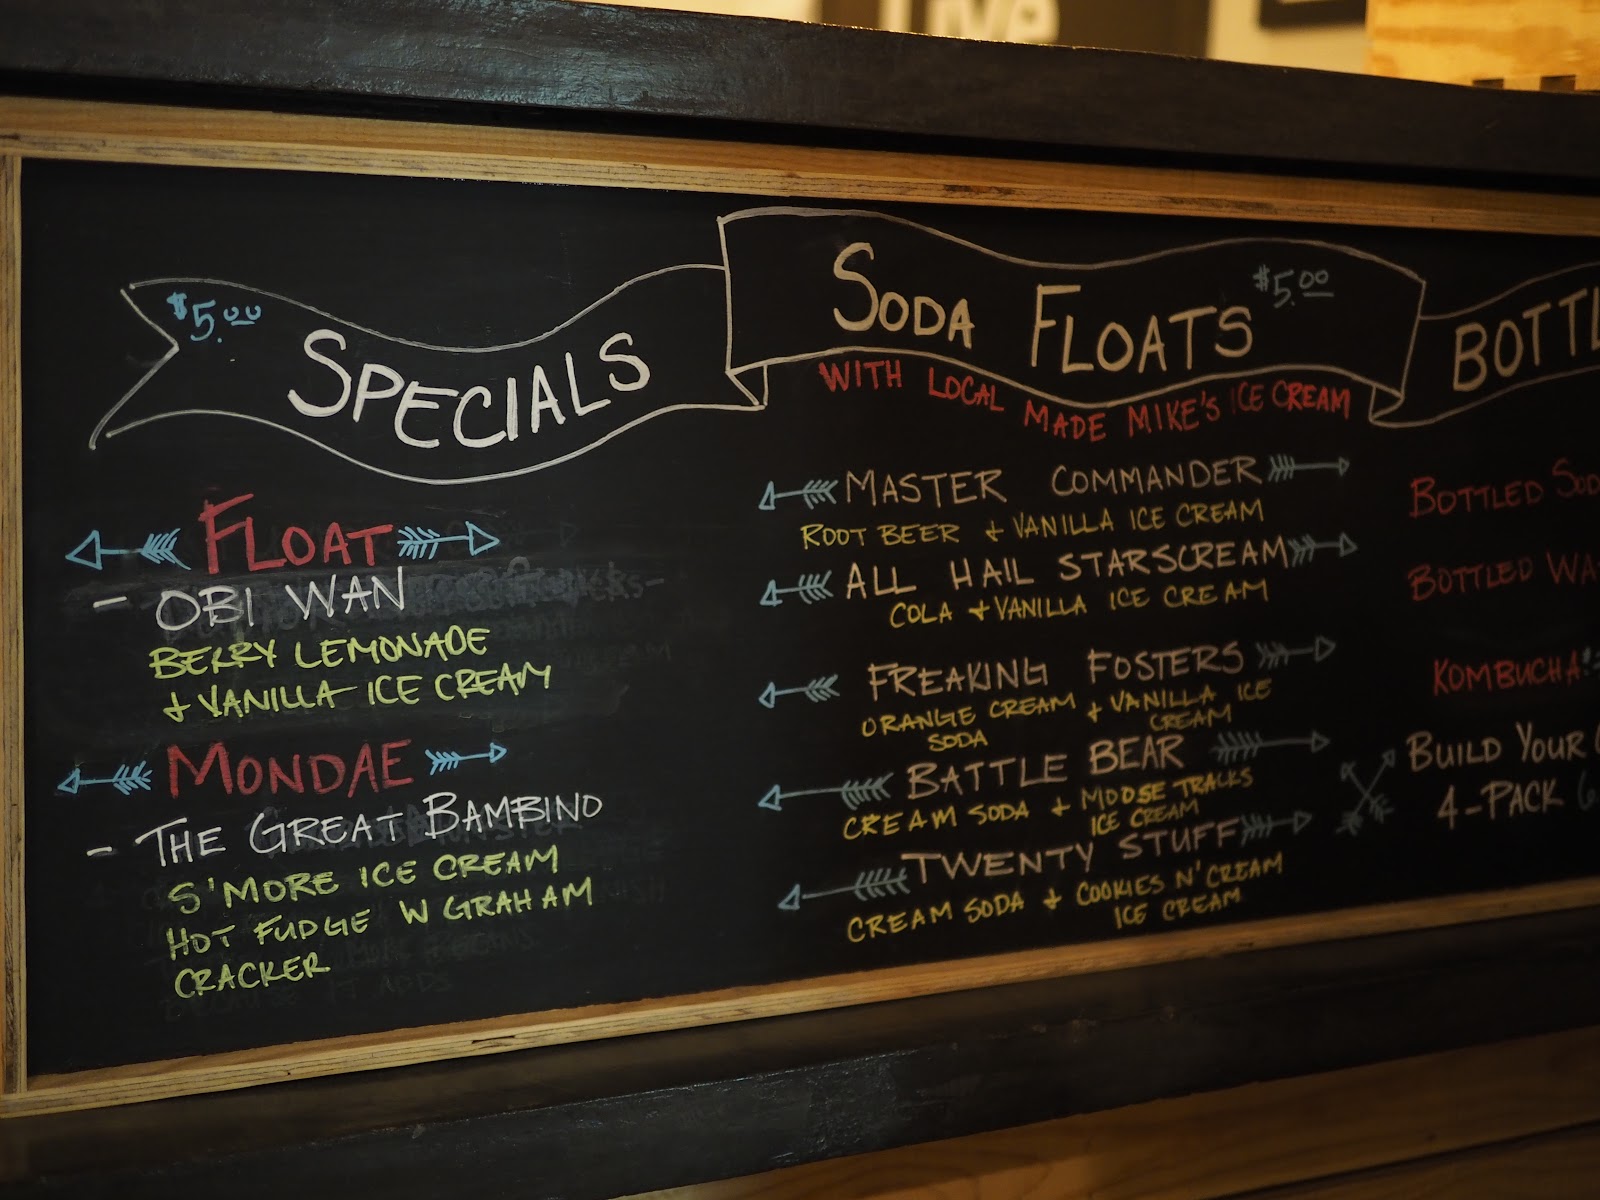 Live
$5.00
SPECIALS
FLOAT
- OBI WAN
BERRY LEMONADE
+ VANILLA ICE CREAM
MONDAE
- THE GREAT BAMBINO
S'MORE ICE CREAM
HOT FUDGE W GRAHAM
CRACKER
SODA FLOATS $5.00
WITH LOCAL MADE MIKE'S ICE CREAM
MASTER COMMANDER
ROOT BEER + VANILLA ICE CREAM
ALL HAIL STARSCREAM
COLA + VANILLA ICE CREAM
FREAKING FOSTERS
ORANGE CREAM + VANILLA ICE
SODA CREAM
BATTLE BEAR
CREAM SODA + MOOSE TRACKS
ICE CREAM
TWENTY STUFF
CREAM SODA + COOKIES N' CREAM
ICE CREAM
BOTTL
BOTTLED SOD
BOTTLED WA
KOMBUCHA
BUILD YOUR
4-PACK